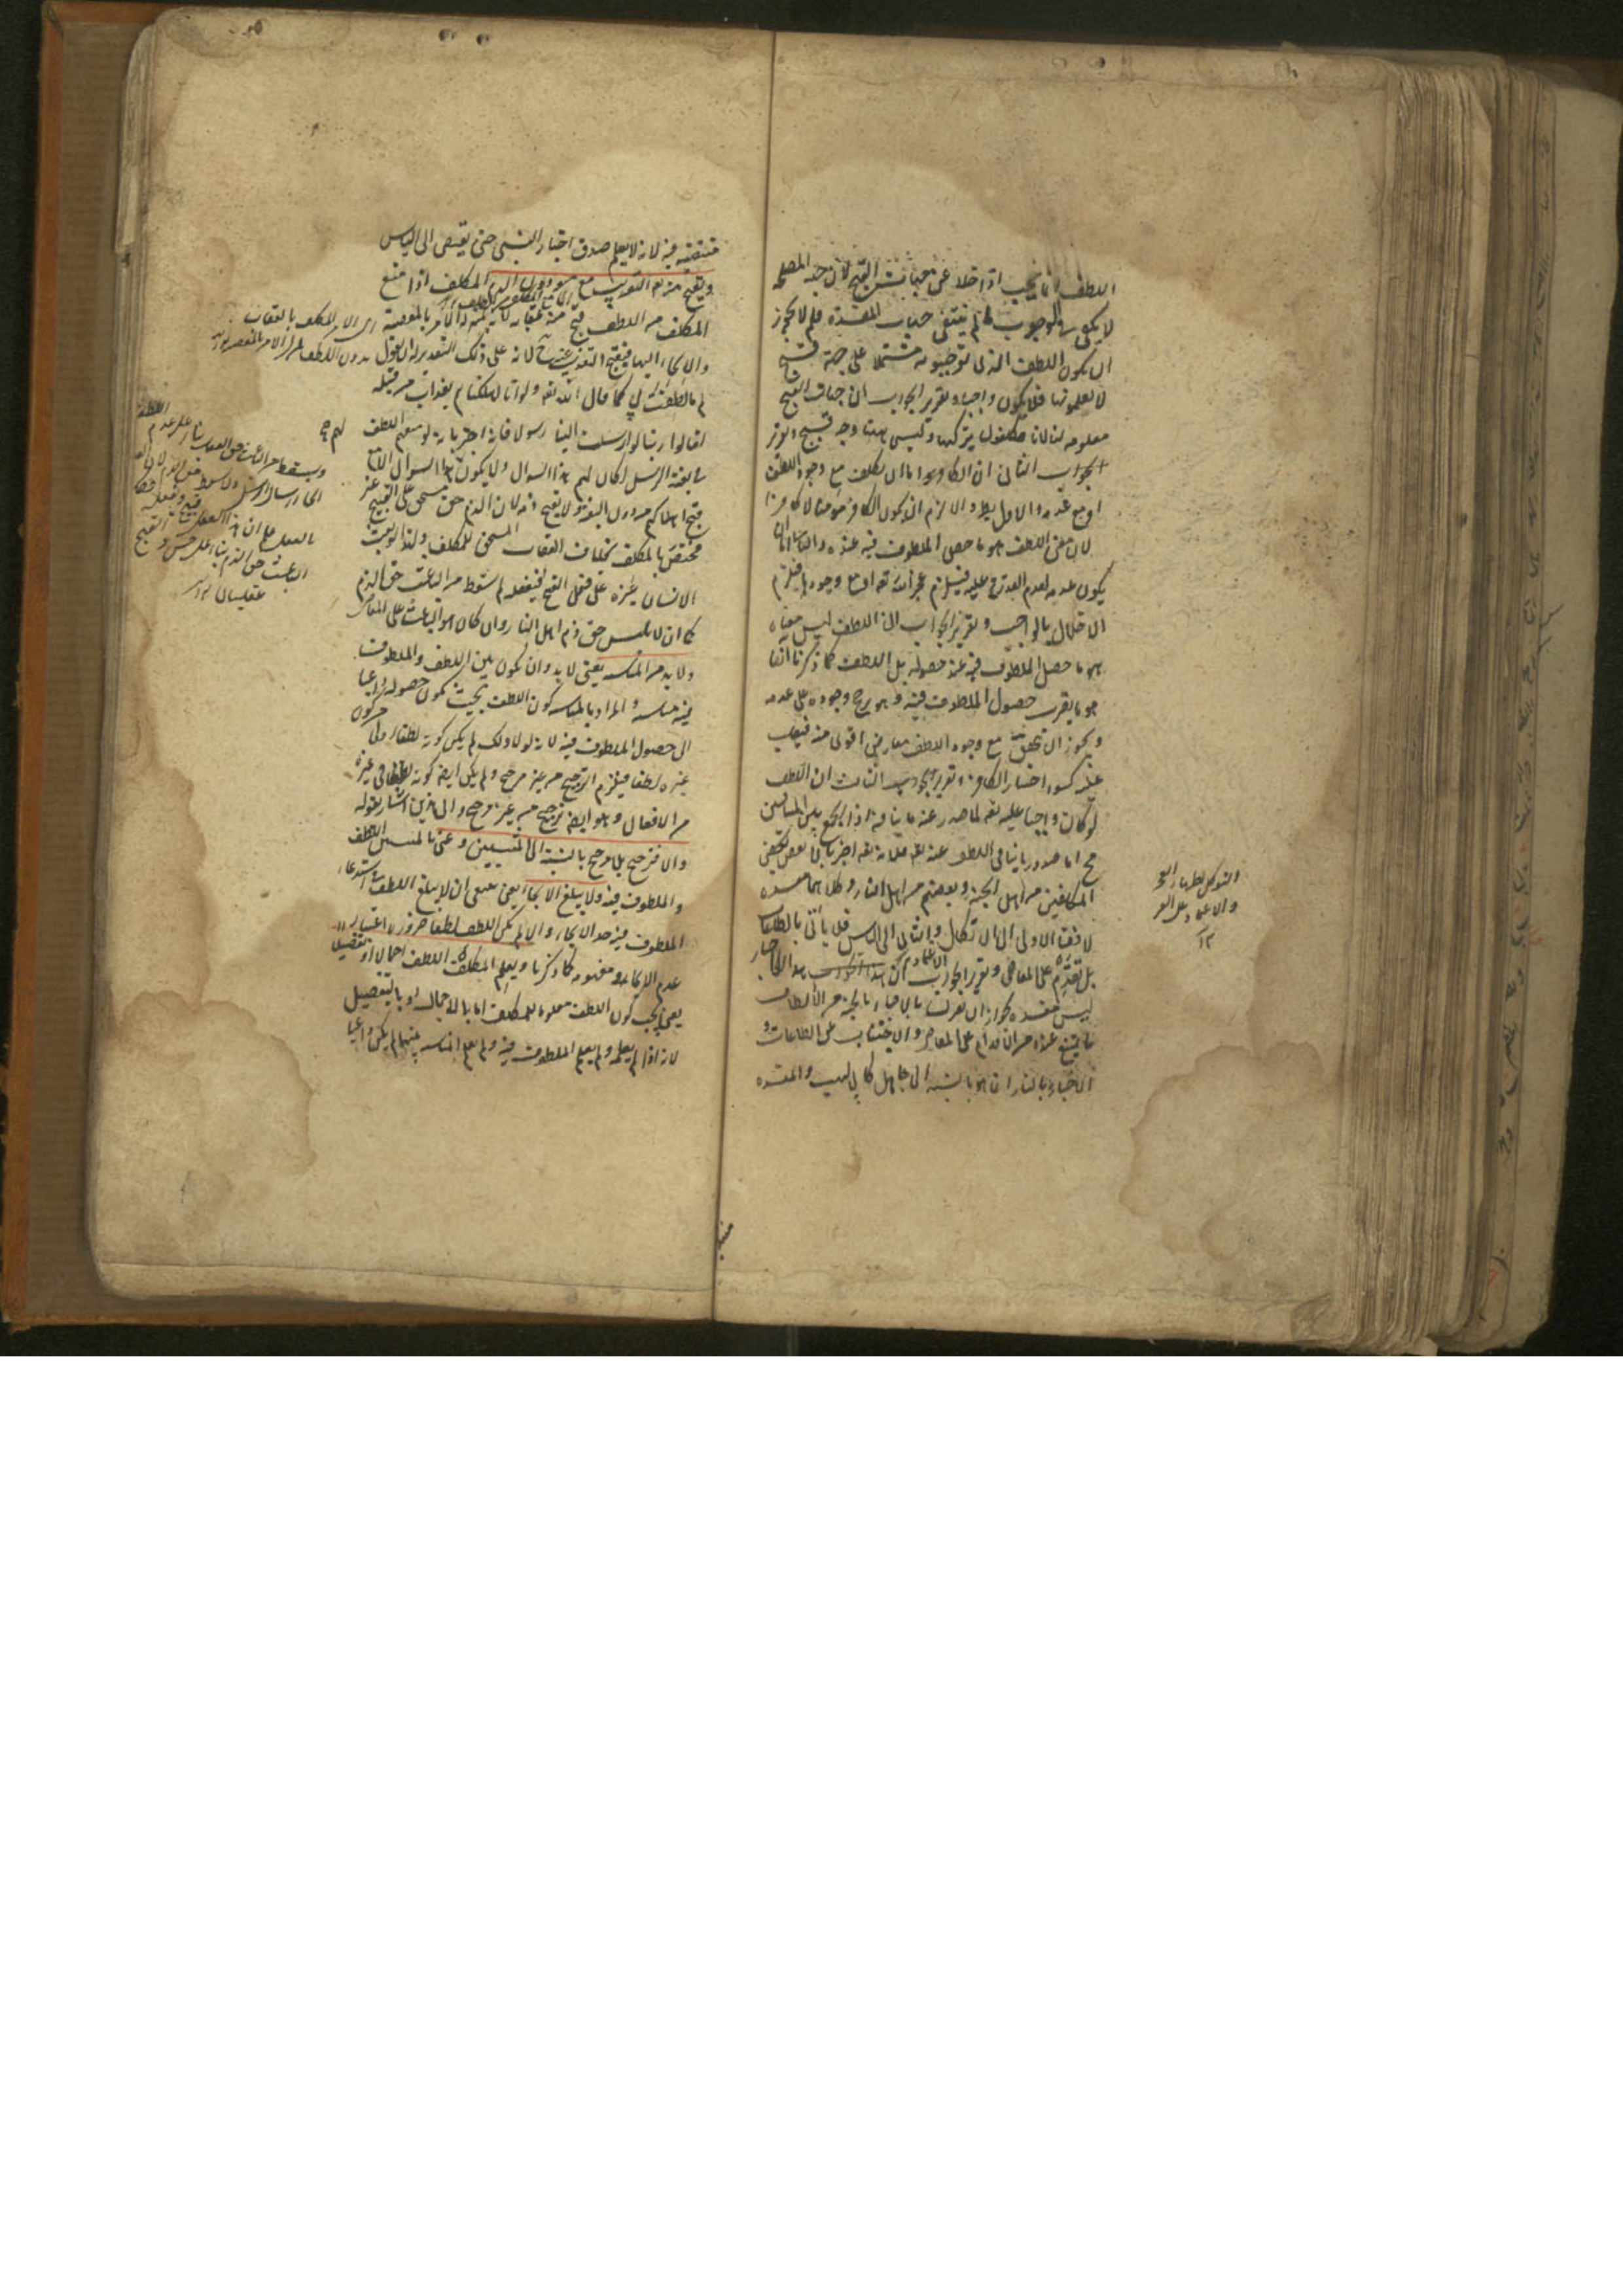 اللطف انما يجب اذا خلا عن جهات القبح لان جهة المصلحة
لا يكفى فى الوجوب ما لم ينتفى جهات المفسدة فلم لا يجوز
ان يكون اللطف الذى توجبونه مشتملا على جهة قبح
لا تعلمونها فلا يكون واجبا وتقرير الجواب ان جهات القبح
معلومة لنا لانا مكلفون بتركها وليس هنا وجه قبح وتقرير
الجواب الثانى ان الكافر اما ان يكلف مع وجود اللطف
او مع عدمه والاول باطل والا لزم ان يكون الكافر مؤمنا لا كافرا
لان معنى اللطف هو ما حصل الملطوف فيه عنده والثانى اما ان
يكون عدمه لعدم القدرة عليه فيلزم عجز الله تعه او مع وجودها فيلزم
الاخلال بالواجب وتقرير الجواب ان اللطف ليس معناه
هو ما حصل الملطوف فيه عند حصوله بل اللطف كما ذكرنا آنفا
هو ما يقرب حصول الملطوف فيه وهو يرجح وجوده على عدمه
ويجوز ان يتحقق مع وجود اللطف معارض اقوى منه فيغلب
عليه كسوء اختيار الكافر وتقرير الجواب الثالث ان اللطف
لو كان واجبا عليه تعه لما صدر عنه ما ينافيه اذ الجمع بين المتنافيين
مح اما صدور ما ينافى اللطف عنه تعه فلانه تعه اخبر بان بعض
المكلفين من اهل الجنة وبعضهم من اهل النار وكلاهما مفسدة
لافضاء الاولى الى الاتكال والثانى الى الياس فلا يأتى بالطاعات
بل يقدم على المعاصى وتقرير الجواب ان هذا الاخبار
ليس مفسدة لجواز ان يقترن بالاخبار بالجنة من الالطاف
ما يمتنع عنده من الاقدام على المعاصى والاجتناب عن الطاعات و
الاخبار بالنار انما هو بالنسبة الى جاهل كابى لهب والمفسدة
والاعتماد على
١٢
منتفية فيه لانه لا يعلم صدق اخبار النبى حتى يفضى الى الياس
ويقبح منه تعه التعذيب مع منعه دون الذم المكلف اذا منع
المكلف من اللطف قبح منه عقابه لانه بمنزلة الامر بالمعصية
والالجاء اليها فيقبح التعذيب عنه ح لانه على ذلك التقدير له ان يقول
لم ما لطفت لى كما قال الله تعه ولو انا اهلكناهم بعذاب من قبله
لقالوا ربنا لولا ارسلت الينا رسولا فانه اخبر بانه لو منعهم اللطف
فى بعثة الرسل لكان لهم هذا السؤال ولا يكون لهم هذا السؤال الا مع
قبح اهلاكهم من دون البعثة ولا يقبح ذمه لان الذم حق مستحق على القبيح غير
مختص بالمكلف بخلاف العقاب المستحق للمكلف ولهذا لو بعث
الانسان غيره على فعل القبيح ففعله لم يسقط من الباعث حق الذم
كما ان لابليس حق ذم اهل النار وان كان هو الباعث على المعاصى
ولا بد من المناسبة يعنى لا بد وان يكون بين اللطف والملطوف
فيه مناسبة والمراد بالمناسبة كون اللطف بحيث يكون حصوله داعيا
الى حصول الملطوف فيه لانه لولا ذلك لم يكن كونه لطفا اولى من كون
غيره لطفا فيلزم الترجيح من غير مرجح ولم يكن ايضا كونه لطفا فى غيره
من الافعال وهو ايضا ترجيح من غير مرجح والى هذين اشار بقوله
والا ترجح بلا مرجح بالنسبة الى المنتسبين وعنى بالمنتسبين اللطف
والملطوف فيه ولا يبلغ الالجاء يعنى ينبغى ان لا يبلغ اللطف فى استدعاء
الملطوف فيه حد الالجاء والا لم يكن اللطف لطفا ضرورة اعتبار
عدم الالجاء فى مفهومه كما ذكرنا ويعلم المكلف اللطف اجمالا او تفصيلا
يعنى يجب كون اللطف معلوما للمكلف اما بالاجمال او بالتفصيل
لانه اذا لم يعلمه ولم يعلم الملطوف فيه ولم يعلم المناسبة بينهما لم يكن داعيا